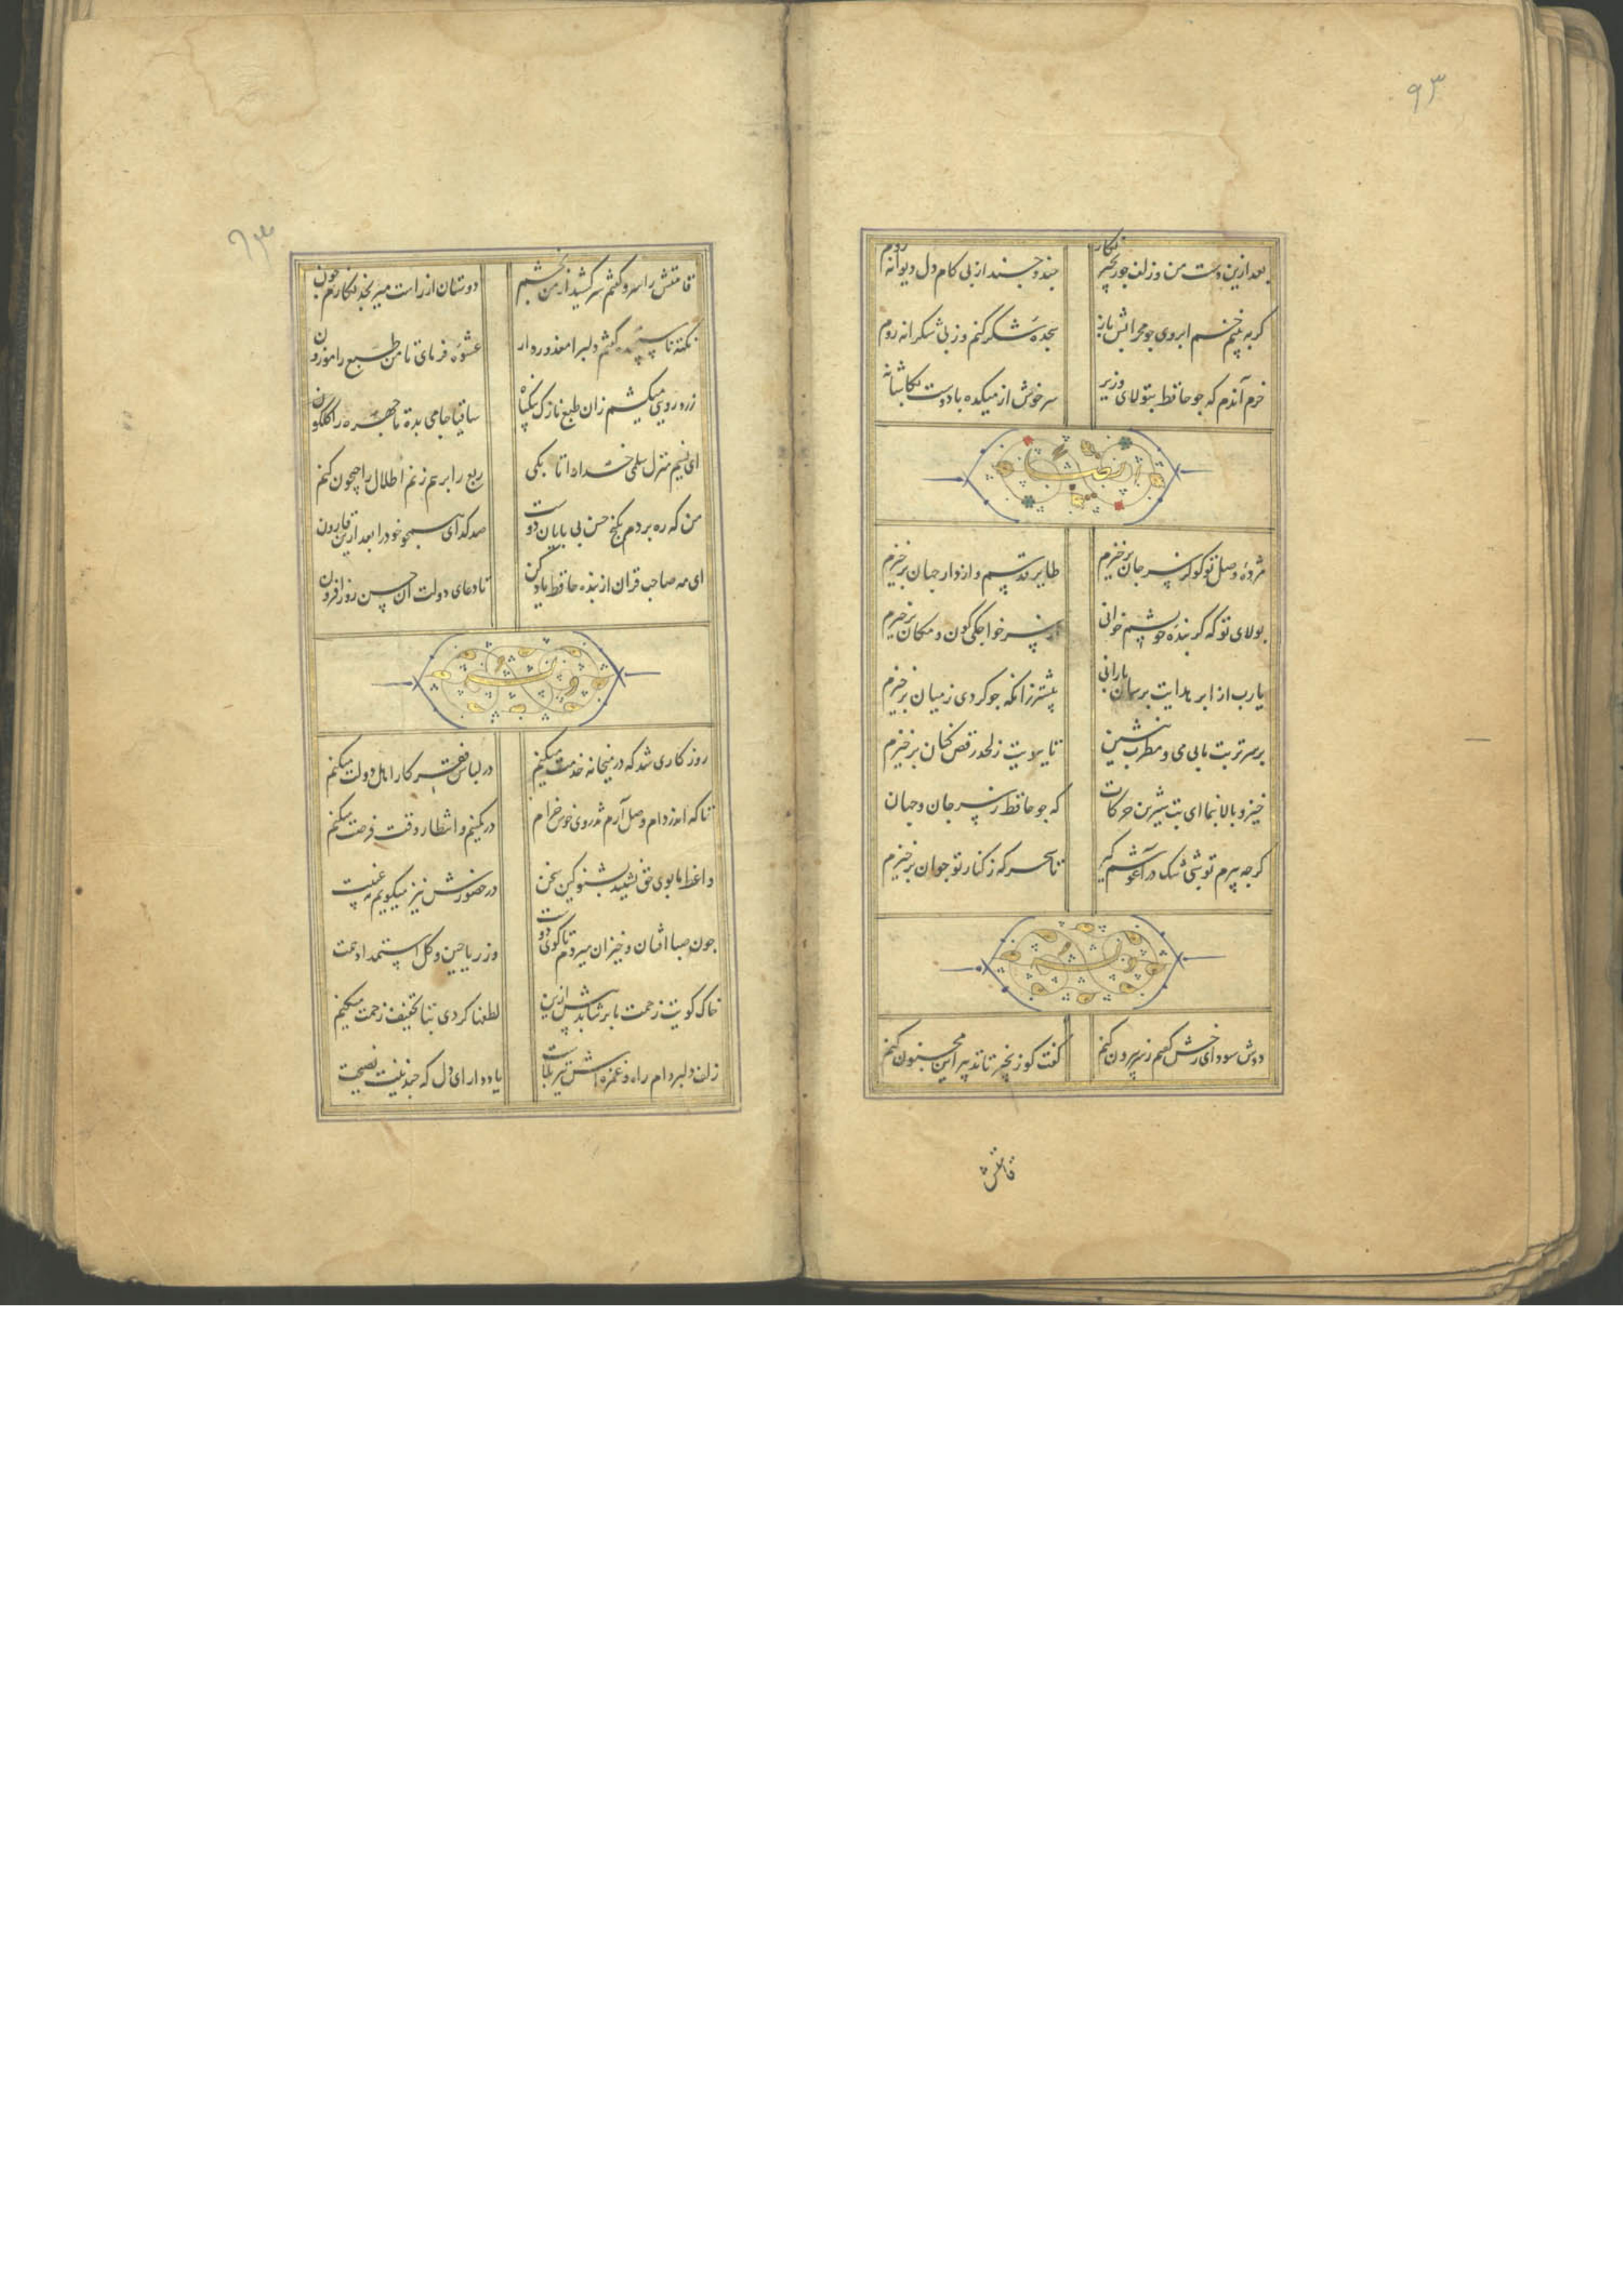 ۹۳
بعد ازین دست من و زلف چو زنجیر نگار چند و چند از پی کام دل دیوانه روم
کر به بینم خم ابروی چو محرابش باز سجدهٔ شکر کنم وز پی شکرانه روم
خرم آندم که چو حافظ بتولای وزیر سر خوش از میکده با دوست بکاشانه
مژدهٔ وصل تو کو کز سر جان برخیزم طایر قدسم و از دار جهان برخیزم
بولای تو که کر بندهٔ خویشم خوانی از سر خواجکی کون و مکان برخیزم
یارب از ابر هدایت برسان بارانی پیشتر زانکه چو کردی ز میان برخیزم
بر سر تربت ما بی می و مطرب منشین تا ببویت ز لحد رقص کنان برخیزم
خیز و بالا بنما ای بت شیرین حرکات که چو حافظ ز سر جان و جهان
کرچه پیرم تو شبی تنک در آغوشم کیر تا سحرکه ز کنار تو جوان برخیزم
دوش سودای رخش کفتم ز سر بیرون کنم کفت کو زنجیر تا تدبیر این مجنون کنم
قامتش
قامتش را سرو کفتم سر کشید از من بخشم دوستان از راست میرنجد نکارم چون
نکتهٔ ناسنجیده کفتم دلبرا معذور دار عشوهٔ فرمای تا من طبع را موزون
زرد رویی میکشم زان طبع نازک بیکناه ساقیا جامی بده تا چهره را کلکون
ای نسیم منزل سلمی خدا را تا بکی ربع را برهم زنم اطلال را جیحون کنم
من که ره بردم بکنج حسن بی پایان دوست صد کدای همچو خود را بعد ازین قارون
ای مه صاحب قران از بنده حافظ یاد کن تا دعای دولت آن حسن روز افزون
روزکاری شد که در میخانه خدمت میکنم در لباس فقر کار اهل دولت میکنم
تا که اندر دام وصل آرم تذروی خوش خرام در کمینم و انتظار وقت فرصت میکنم
واعظ ما بوی حق نشنید بشنو کین سخن در حضورش نیز میکویم نه غیبت
چون صبا افتان و خیزان میروم تا کوی دوست وز ریاحین و کل استمداد همت
خاک کویت زحمت ما برنتابد بیش ازین لطفها کردی بتا تخفیف زحمت میکنم
زلف دلبر دام راه و غمزه اش تیر بلاست یاد دار ای دل که چندینت نصیحت